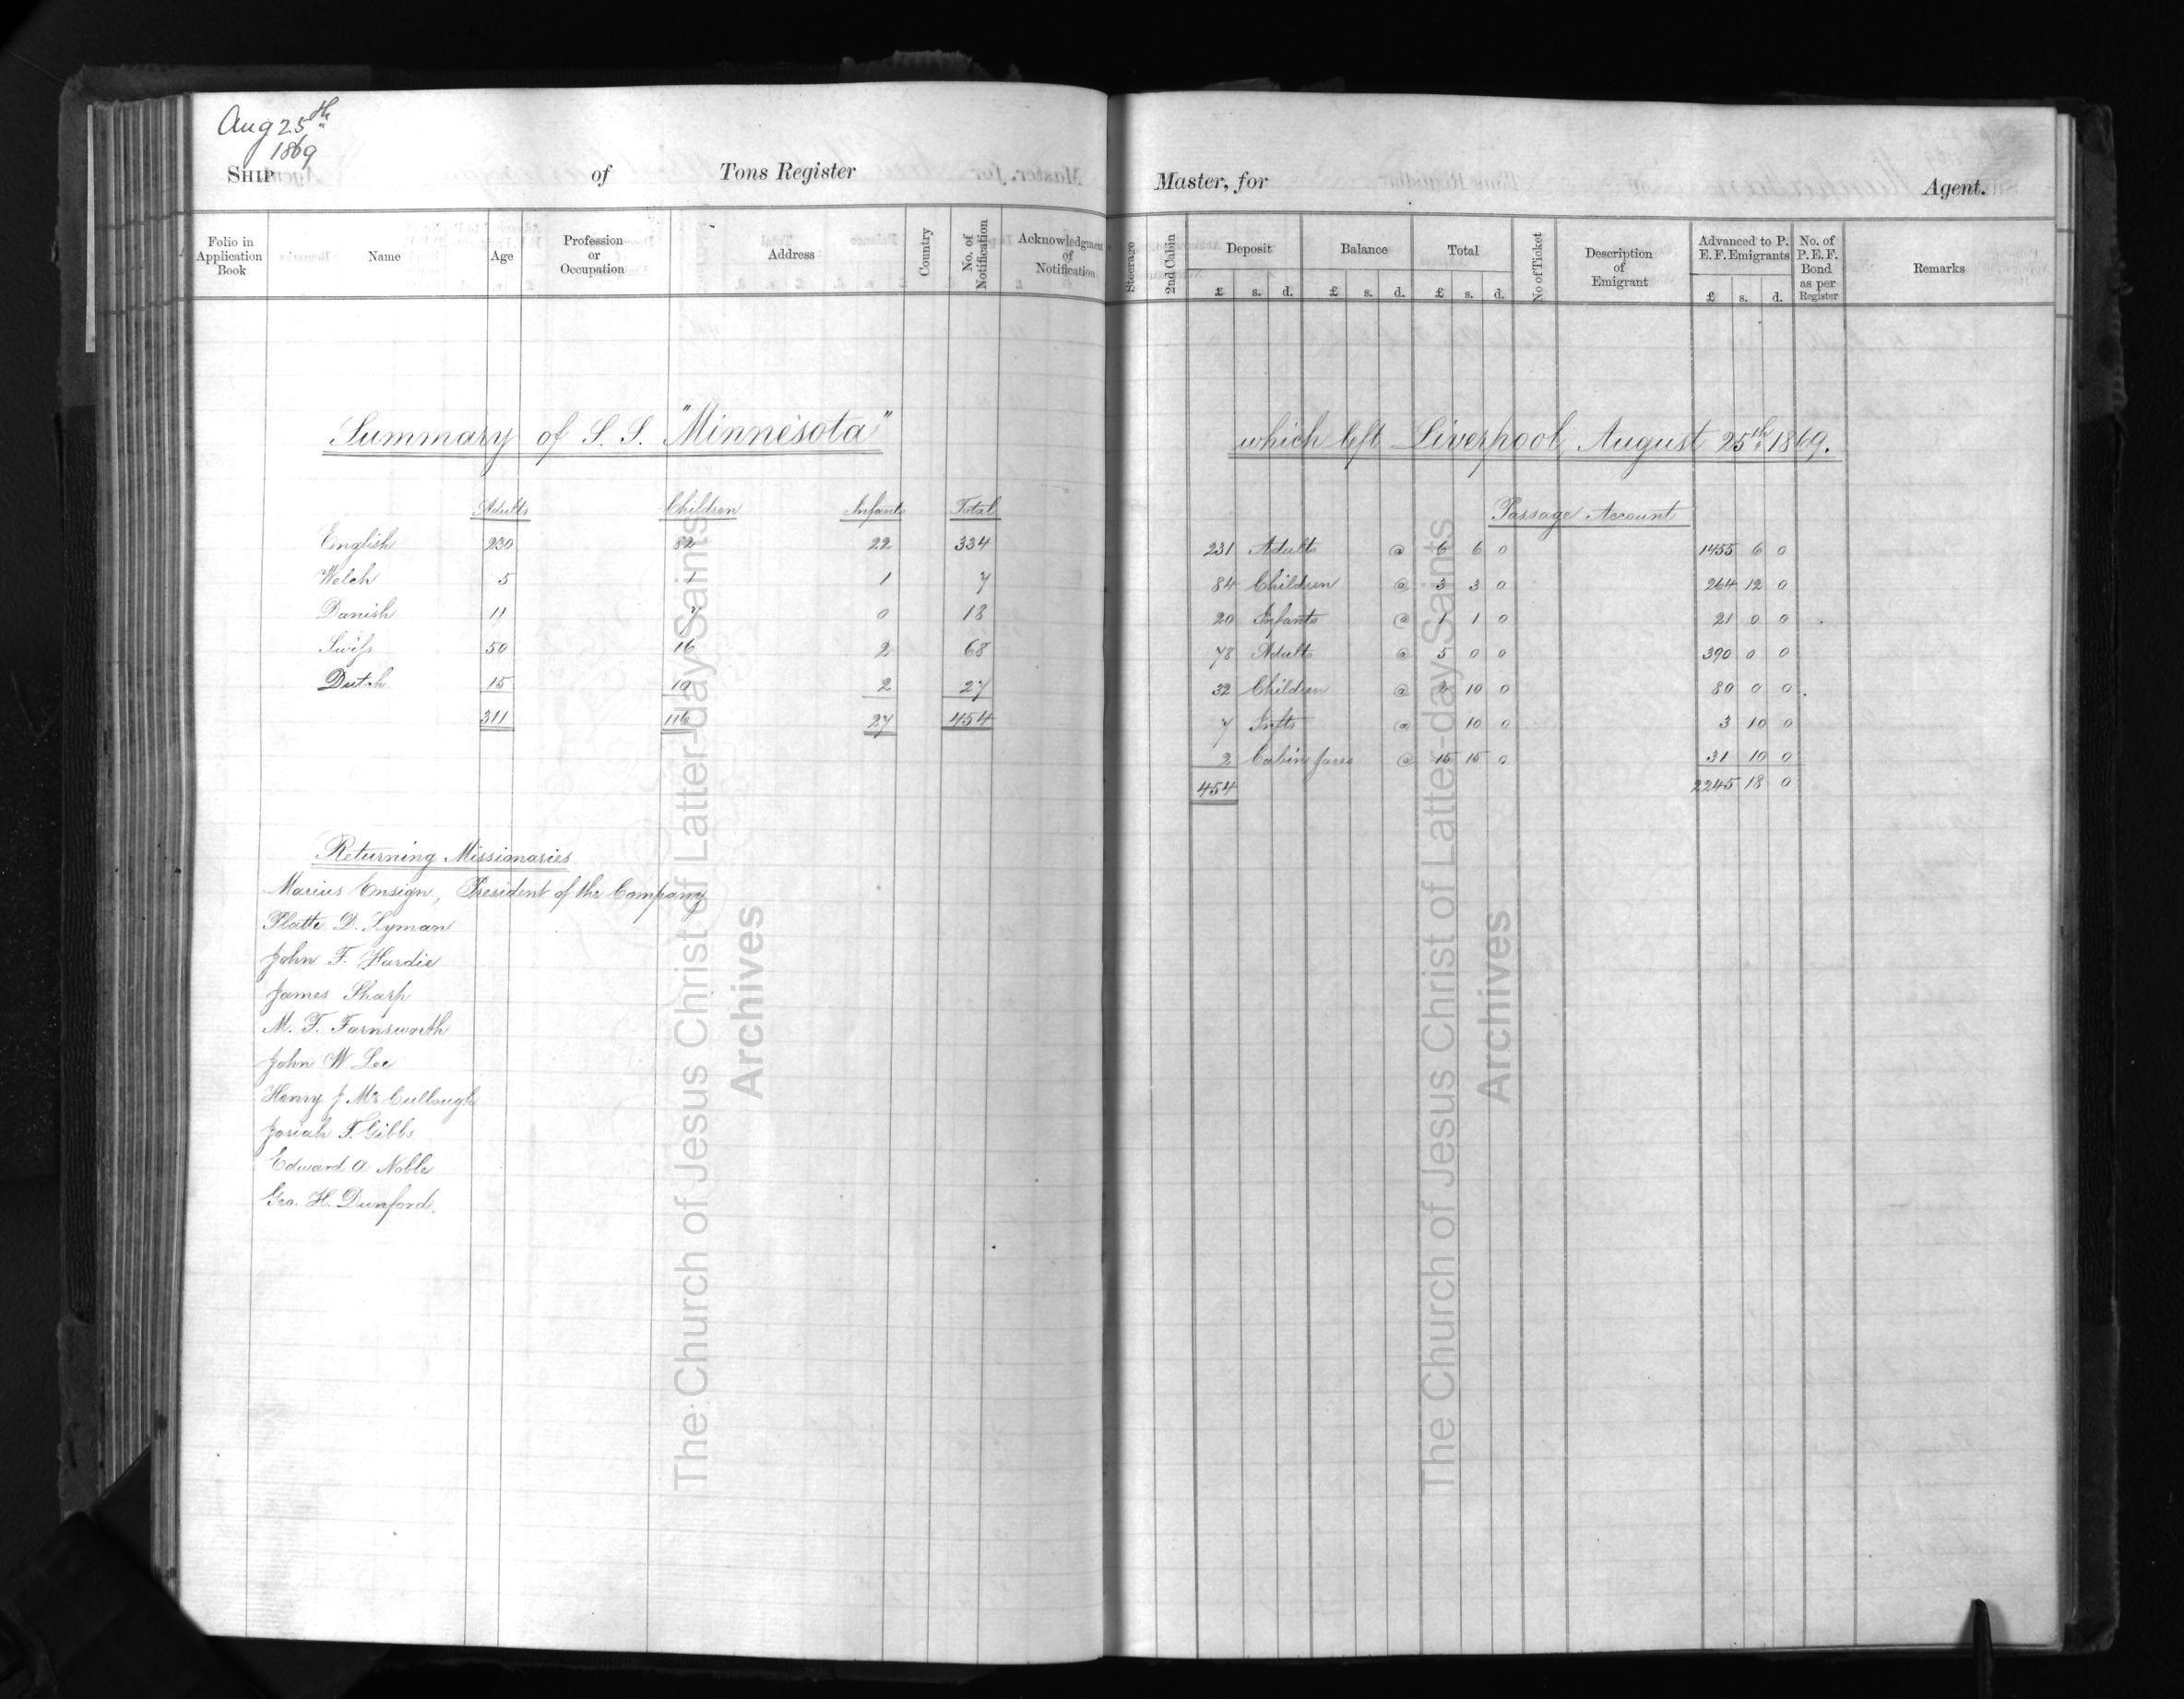 Aug 25th
1869
SHIP of Tons Register
Folio in Application Book Name Age Profession or Occupation Address Country No. of Notification Acknowledgment of Notification
Summary of S. S. "Minnesota"
Adults Children Infants Total
English 230 82 22 334
Welch 5 1 1 7
Danish 11 7 0 18
Swiss 50 16 2 68
Dutch 15 10 2 27
311 116 27 454
Returning Missionaries
Marius Ensign, President of the Company
Platte D. Lyman
John F. Hardie
James Sharp
M. F. Farnsworth
John W Lee
Henry J McCullough
Josiah F. Gibbs
Edward A Noble
Geo. H. Dunford.
The Church of Jesus Christ of Latter-day Saints
Archives
Master, for Agent.
Steerage 2nd Cabin Deposit Balance Total No of Ticket Description of Emigrant Advanced to P. E. F. Emigrants No. of P. E. F. Bond as per Register Remarks
£ s. d. £ s. d. £ s. d. £ s. d.
which left Liverpool, August 25th 1869.
Passage Account
231 Adults @ 6 6 0 1455 6 0
84 Children @ 3 3 0 264 12 0
20 Infants @ 1 1 0 21 0 0
78 Adults @ 5 0 0 390 0 0
32 Children @ 2 10 0 80 0 0
7 Infts @ 10 0 3 10 0
2 Cabin fares @ 15 15 0 31 10 0
454 2245 18 0
The Church of Jesus Christ of Latter-day Saints
Archives